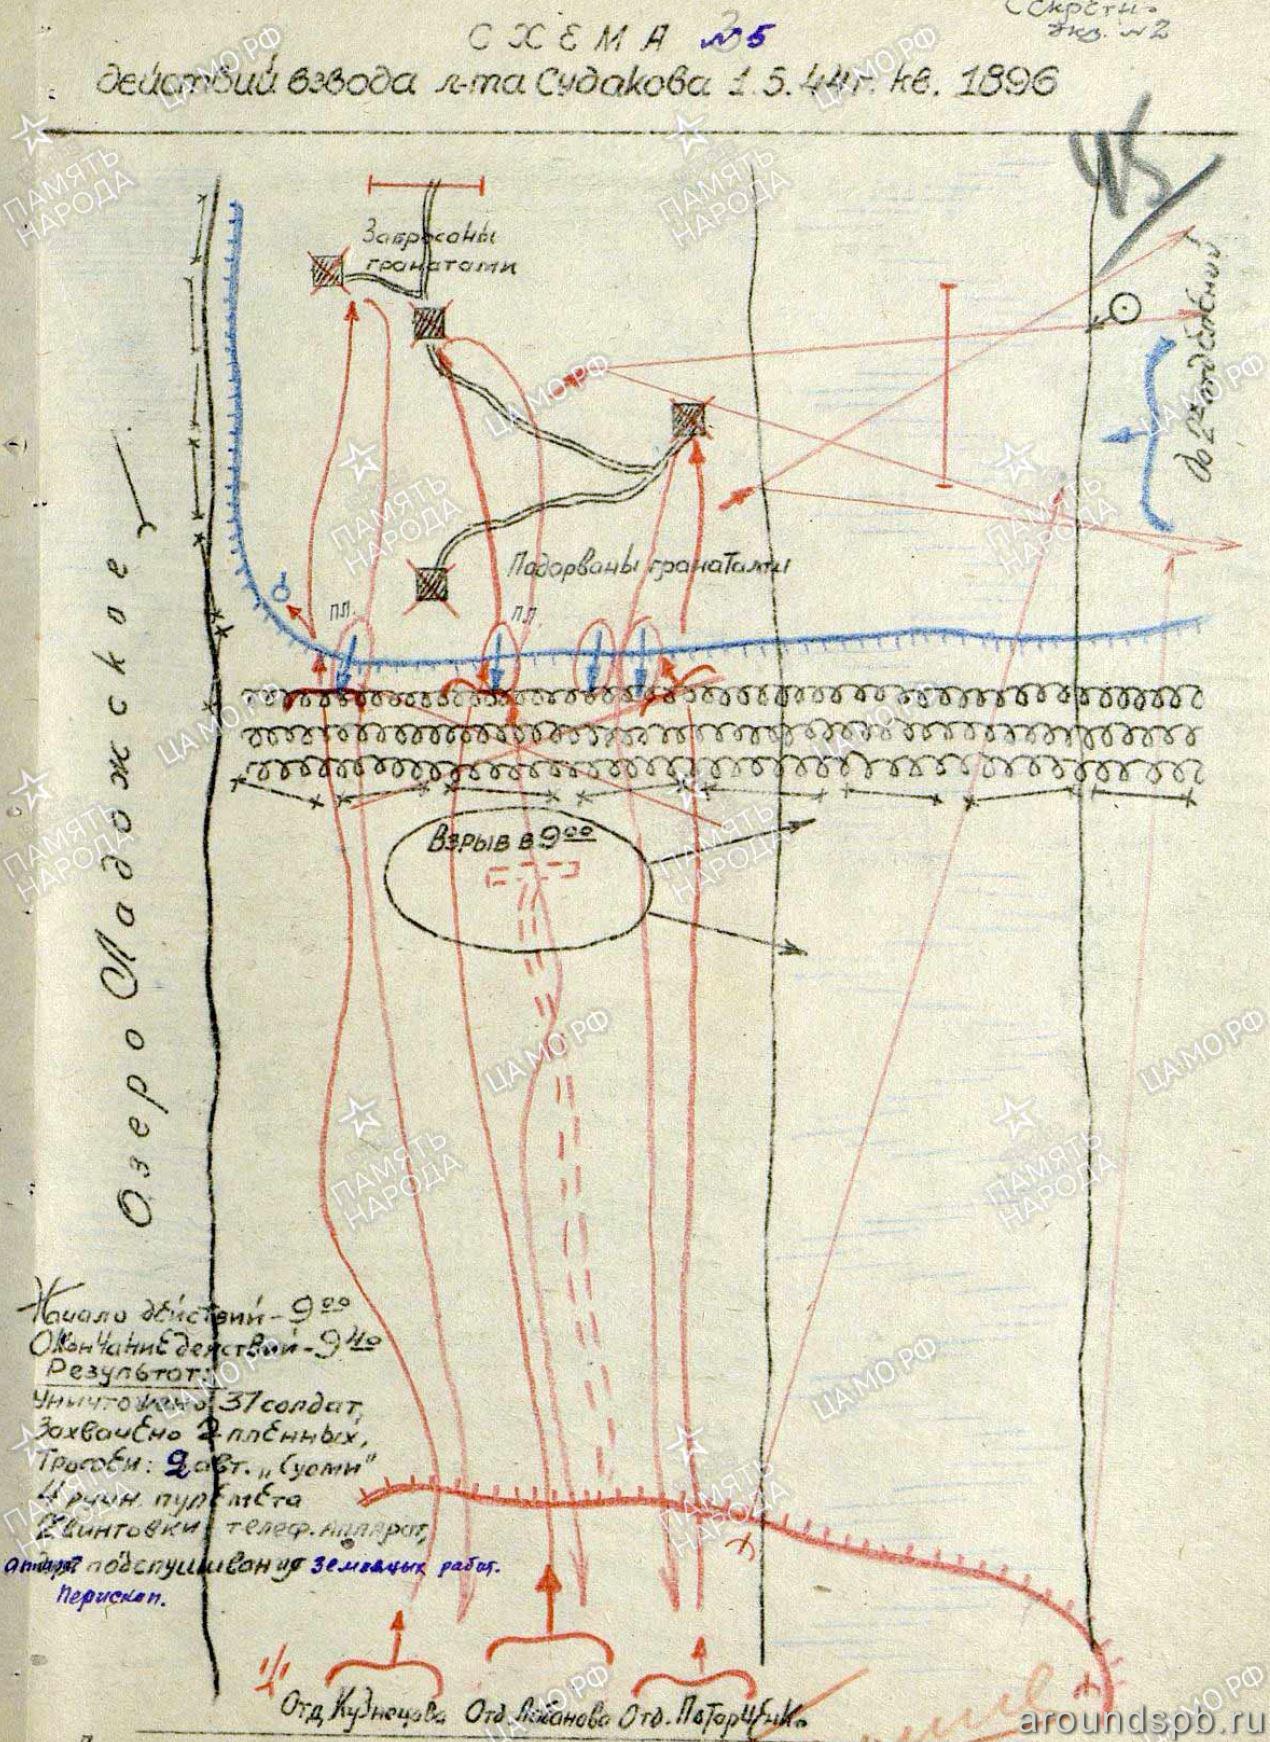 Секретн.
экз. №2
СХЕМА №5
действий взвода л-та Судакова 1.5.44г. кв. 1896
45
Забросаны
гранатами
До 2х отделений
Подорваны гранатами
пл.
пл.
Озеро Ладожское
Взрыв в 9 00
Начало действий - 9 00
Окончание действий - 9 40
Результат:
Уничтожено 37 солдат,
Захвачено 2 пленных,
Трофеи: 2 авт. „Суоми"
4 ручн. пулемета
винтовки телеф. аппарат,
аппарат подслушивания земляных работ.
Перископ.
Отд. Кузнецова Отд. Лобанова Отд.
ЦАМО РФ
ПАМЯТЬ
НАРОДА
aroundspb.ru